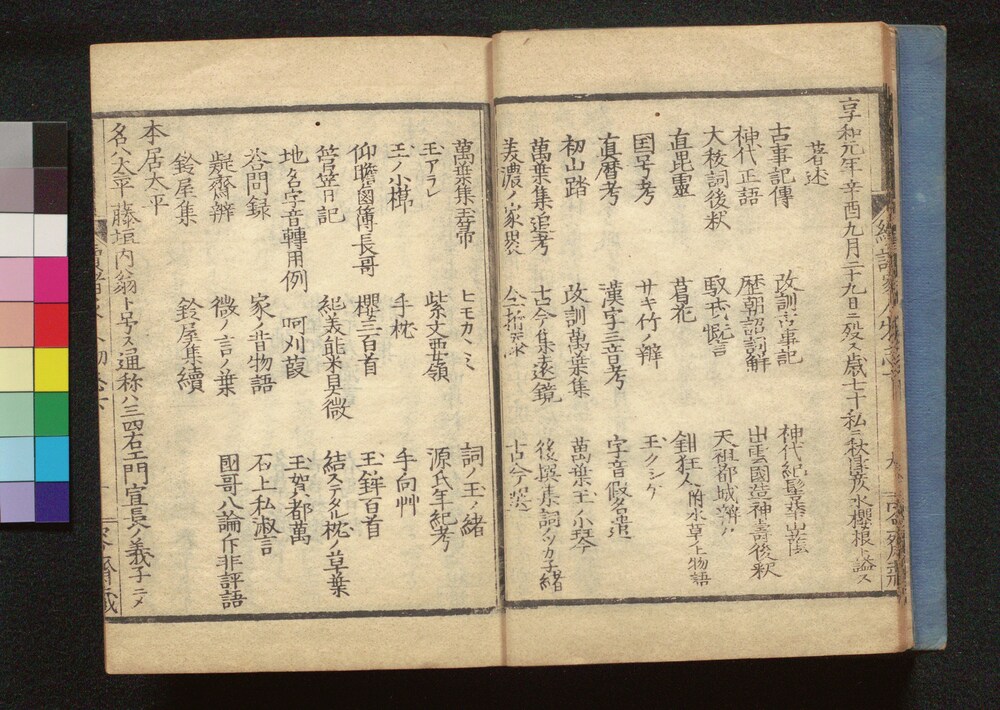 享和元年辛酉九月二十九日ニ歿ス歳七十私ニ秋津彦水櫻根ト謚ス
著述
古事記傳 改訓古事記 神代紀髻華山蔭
神代正語 歴朝詔詞解 出雲國造神壽後釈
大祓詞後釈 馭戎慨言 天祖都城辨々
直毘靈 葛花 鉗狂人 附水草ノ上物語
国号考 サキ竹ノ辨 玉クシゲ
真暦考 漢字三音考 字音假名遣
初山踏 改訓萬葉集 萬葉玉ノ小琴
萬葉集追考 古今集遠鏡 後撰集詞ノツカ子緒
美濃ノ家裹 仝折添 古今選
萬葉集玉箒 ヒモカヽミ 詞ノ玉ノ緒
玉アラレ 紫文要領 源氏年紀考
玉ノ小櫛 手枕 手向艸
仰瞻鹵簿長哥 櫻三百首 玉鉾百首
菅笠日記 紀義能米具微 結ステタル枕ノ草葉
地名字音轉用例 呵刈葭 玉賀都萬
答問録 家ノ昔物語 石上私淑言
疑齋辨 微ノ言ノ葉 國哥八論斥非評語
鈴屋集 鈴屋集續
本居太平
名ハ太平藤垣内翁ト号ス通称ハ三四右エ門宣長ノ義子ニメ